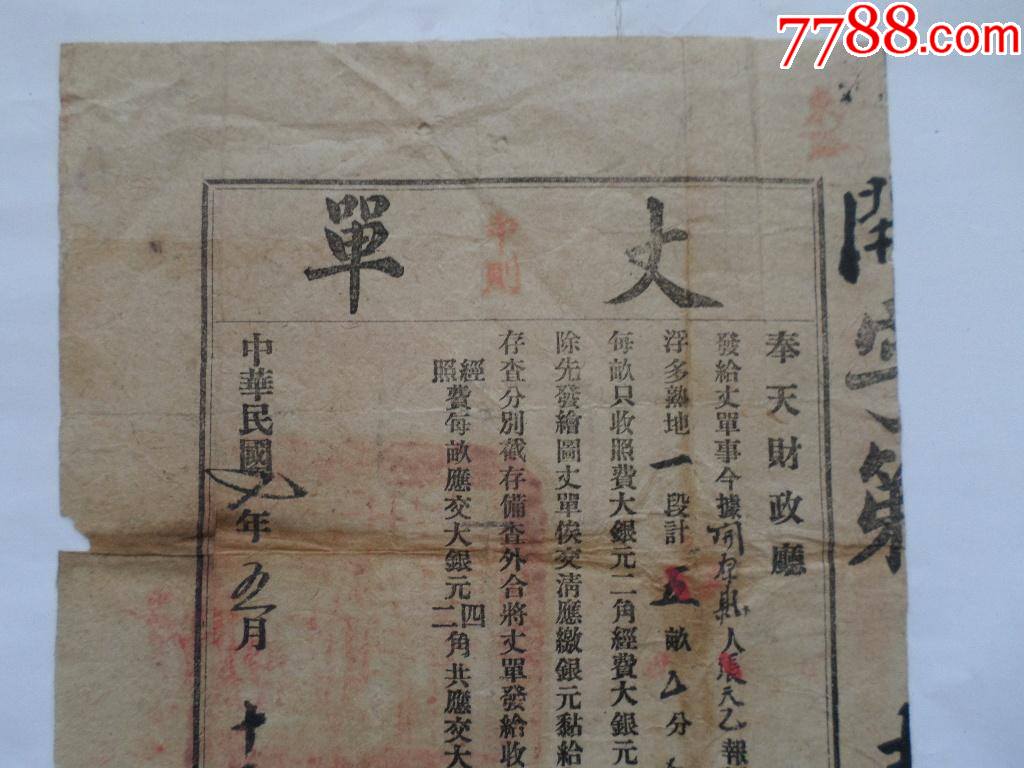 7788.com
開
第
丈單
中則
奉天財政廳
發給丈單事今據 人張天乙報
浮多熟地一段計五畝乙分
每畝只收照費大銀元二角經費大銀元
除先發繪圖丈單俟交清應繳銀元黏給
存查分別截存備查外合將丈單發給收
經費每畝應交大銀元四角共應交大
照 二
中華民國九年五月十